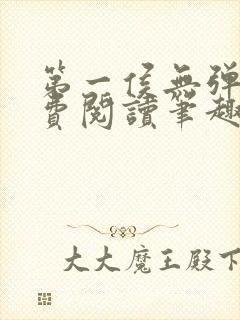 第一侯無弹
費閱讀筆趣
大大魔王殿下